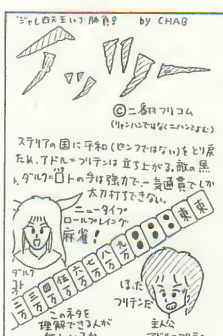 ジャレ四天王いざ勝負!! by CHAB
アッリー
©二番村フリコム
(リャンハンではなくニハンとよむ)
ステリアの国に平和(ピンフではない)をとり戻す
ため、アドル=フリテンは立ち上がる。敵の黒
、ダルク=コトの手は強力で、一気通貫でしか
太刀打ちできない。
ニュータイプ
ロールプレイング
麻雀!
二万 三万 四万 伍万 六万 七万 八万 九万 東 東
ダルク
コト
ぼた
フリテンだ
この手を
理解できるんが
主人公
アドル=フリテン